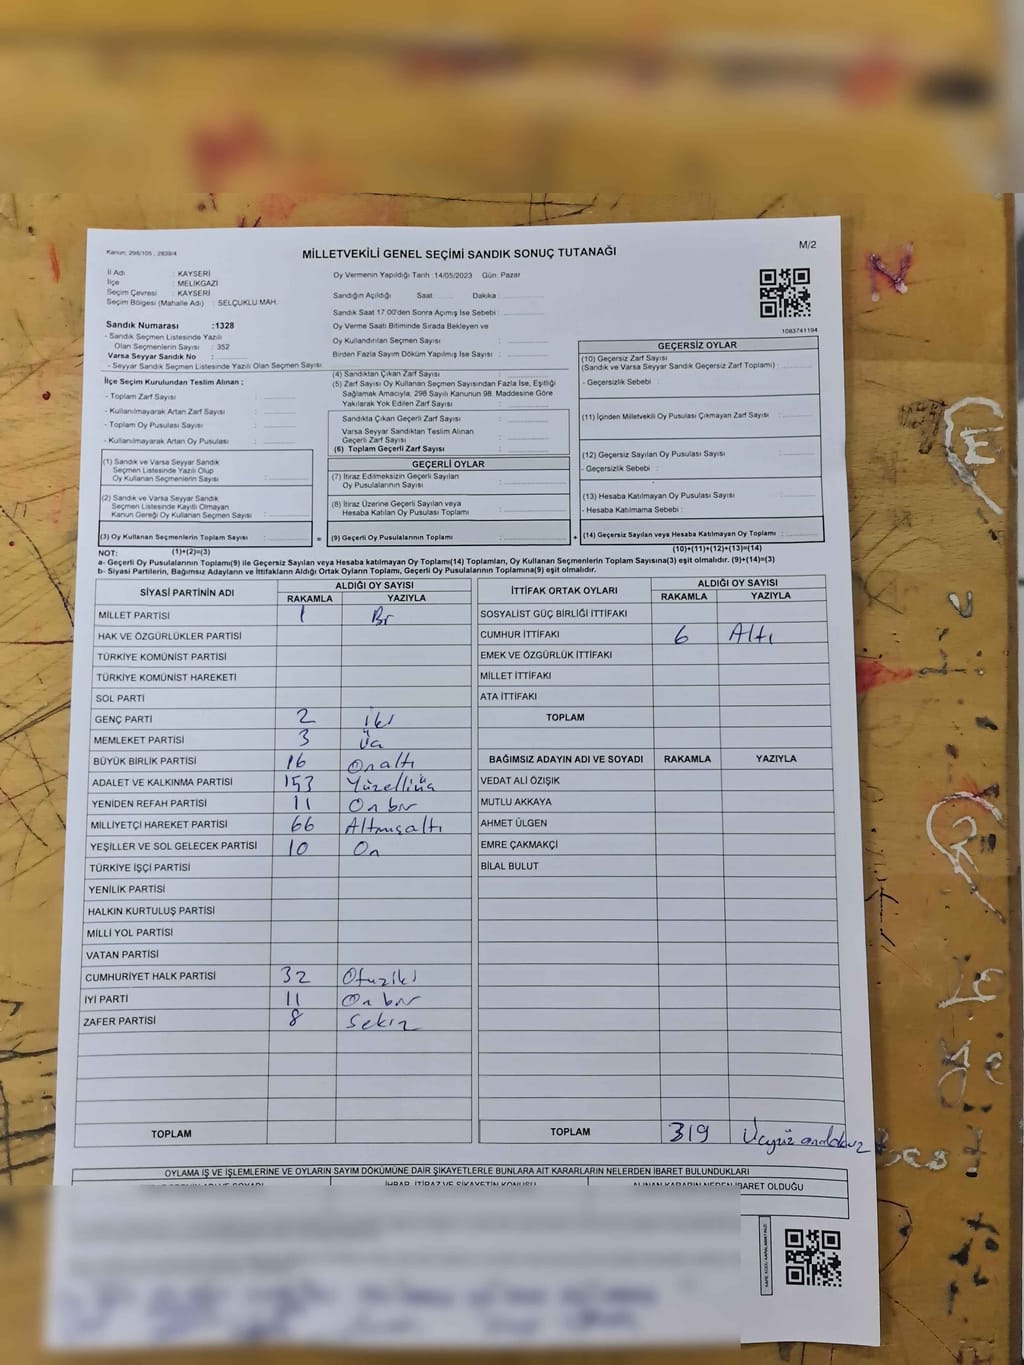 Kanun: 298/105 ; 2839/4
MİLLETVEKİLİ GENEL SEÇİMİ SANDIK SONUÇ TUTANAĞI
M/2
İl Adı : KAYSERİ
İlçe : MELİKGAZİ
Seçim Çevresi : KAYSERİ
Seçim Bölgesi (Mahalle Adı) : SELÇUKLU MAH.
Sandık Numarası :1328
- Sandık Seçmen Listesinde Yazılı
Olan Seçmenlerin Sayısı : 352
Varsa Seyyar Sandık No :
- Seyyar Sandık Seçmen Listesinde Yazılı Olan Seçmen Sayısı:
İlçe Seçim Kurulundan Teslim Alınan ;
- Toplam Zarf Sayısı :
- Kullanılmayarak Artan Zarf Sayısı :
- Toplam Oy Pusulası Sayısı :
- Kullanılmayarak Artan Oy Pusulası :
(1) Sandık ve Varsa Seyyar Sandık
Seçmen Listesinde Yazılı Olup
Oy Kullanan Seçmenlerin Sayısı :
(2) Sandık ve Varsa Seyyar Sandık
Seçmen Listesinde Kayıtlı Olmayan
Kanun Gereği Oy Kullanan Seçmen Sayısı :
(3) Oy Kullanan Seçmenlerin Toplam Sayısı :
(1)+(2)=(3)
Oy Vermenin Yapıldığı Tarih :14/05/2023 Gün: Pazar
Sandığın Açıldığı Saat Dakika :
Sandık Saat 17.00'den Sonra Açılmış İse Sebebi :
Oy Verme Saati Bitiminde Sırada Bekleyen ve
Oy Kullandırılan Seçmen Sayısı :
Birden Fazla Sayım Döküm Yapılmış İse Sayısı :
(4) Sandıktan Çıkan Zarf Sayısı :
(5) Zarf Sayısı Oy Kullanan Seçmen Sayısından Fazla İse, Eşitliği
Sağlamak Amacıyla; 298 Sayılı Kanunun 98. Maddesine Göre
Yakılarak Yok Edilen Zarf Sayısı :
Sandıkta Çıkan Geçerli Zarf Sayısı :
Varsa Seyyar Sandıktan Teslim Alınan
Geçerli Zarf Sayısı :
(6) Toplam Geçerli Zarf Sayısı :
GEÇERLİ OYLAR
(7) İtiraz Edilmeksizin Geçerli Sayılan
Oy Pusulalarının Sayısı :
(8) İtiraz Üzerine Geçerli Sayılan veya
Hesaba Katılan Oy Pusulası Toplamı :
= (9) Geçerli Oy Pusulalarının Toplamı :
1083741194
GEÇERSİZ OYLAR
(10) Geçersiz Zarf Sayısı
(Sandık ve Varsa Seyyar Sandık Geçersiz Zarf Toplamı) :
- Geçersizlik Sebebi :
(11) İçinden Milletvekili Oy Pusulası Çıkmayan Zarf Sayısı :
(12) Geçersiz Sayılan Oy Pusulası Sayısı :
- Geçersizlik Sebebi :
(13) Hesaba Katılmayan Oy Pusulası Sayısı :
- Hesaba Katılmama Sebebi :
+ (14) Geçersiz Sayılan veya Hesaba Katılmayan Oy Toplamı :
(10)+(11)+(12)+(13)=(14)
NOT:
a- Geçerli Oy Pusulalarının Toplamı(9) ile Geçersiz Sayılan veya Hesaba Katılmayan Oy Toplamı(14) Toplamları, Oy Kullanan Seçmenlerin Toplam Sayısına(3) eşit olmalıdır. (9)+(14)=(3)
b- Siyasi Partilerin, Bağımsız Adayların ve İttifakların Aldığı Ortak Oyların Toplamı, Geçerli Oy Pusulalarının Toplamına(9) eşit olmalıdır.
SİYASİ PARTİNİN ADI ALDIĞI OY SAYISI
RAKAMLA YAZIYLA
MİLLET PARTİSİ 1 Bir
HAK VE ÖZGÜRLÜKLER PARTİSİ
TÜRKİYE KOMÜNİST PARTİSİ
TÜRKİYE KOMÜNİST HAREKETİ
SOL PARTİ
GENÇ PARTİ 2 iki
MEMLEKET PARTİSİ 3 Üç
BÜYÜK BİRLİK PARTİSİ 16 Onaltı
ADALET VE KALKINMA PARTİSİ 153 Yüzelliüç
YENİDEN REFAH PARTİSİ 11 On bir
MİLLİYETÇİ HAREKET PARTİSİ 66 Altmışaltı
YEŞİLLER VE SOL GELECEK PARTİSİ 10 On
TÜRKİYE İŞÇİ PARTİSİ
YENİLİK PARTİSİ
HALKIN KURTULUŞ PARTİSİ
MİLLİ YOL PARTİSİ
VATAN PARTİSİ
CUMHURİYET HALK PARTİSİ 32 Otuziki
İYİ PARTİ 11 On bir
ZAFER PARTİSİ 8 Sekiz
TOPLAM
İTTİFAK ORTAK OYLARI ALDIĞI OY SAYISI
RAKAMLA YAZIYLA
SOSYALİST GÜÇ BİRLİĞİ İTTİFAKI
CUMHUR İTTİFAKI 6 Altı
EMEK VE ÖZGÜRLÜK İTTİFAKI
MİLLET İTTİFAKI
ATA İTTİFAKI
TOPLAM
BAĞIMSIZ ADAYIN ADI VE SOYADI RAKAMLA YAZIYLA
VEDAT ALİ ÖZIŞIK
MUTLU AKKAYA
AHMET ÜLGEN
EMRE ÇAKMAKÇİ
BİLAL BULUT
TOPLAM 319 Üçyüz ondokuz
OYLAMA İŞ VE İŞLEMLERİNE VE OYLARIN SAYIM DÖKÜMÜNE DAİR ŞİKAYETLERLE BUNLARA AİT KARARLARIN NELERDEN İBARET BULUNDUKLARI
İHBAR, İTİRAZ VE ŞİKAYETİN KONUSU ALINAN KARARIN NEDEN İBARET OLDUĞU